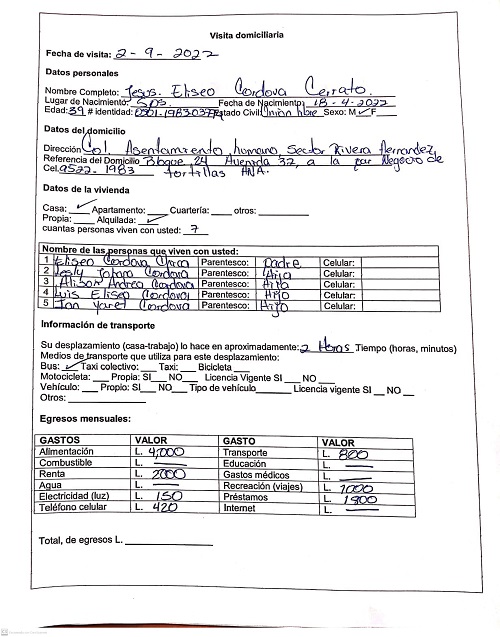 Visita domiciliaria
Fecha de visita: 2 - 9 - 2022
Datos personales
Nombre Completo: Jesus Eliseo Cordova Cerrato.
Lugar de Nacimiento: SPS. Fecha de Nacimiento: 18 - 4 - 2022
Edad: 39 # identidad: Estado Civil Union libre Sexo: M ✓ F
Datos del domicilio
Dirección Col. Asentamiento humano, Sector Rivera Hernandez,
Referencia del Domicilio Bloque 24 Avenida 32, a la par Negocio de
Cel. 9522-1983 tortillas ANA.
Datos de la vivienda
Casa: ✓ Apartamento: Cuartería: otros:
Propia: Alquilada: ✓
cuantas personas viven con usted: 7
Nombre de las personas que viven con usted:
1 Eliseo Cordova Parentesco: Padre Celular:
2 Cordova Parentesco: Hija Celular:
3 Alison Andrea Cordova Parentesco: Hija Celular:
4 Luis Eliseo Cordova Parentesco: Hijo Celular:
5 Ian Yaret Cordova Parentesco: Hijo Celular:
Información de transporte
Su desplazamiento (casa-trabajo) lo hace en aproximadamente: 2 Horas Tiempo (horas, minutos)
Medios de transporte que utiliza para este desplazamiento:
Bus: ✓ Taxi colectivo: Taxi: Bicicleta
Motocicleta: Propia: SI NO Licencia Vigente SI NO
Vehículo: Propio: SI NO Tipo de vehículo Licencia vigente SI NO
Otros:
Egresos mensuales:
GASTOS VALOR GASTO VALOR
Alimentación L. 4,000 Transporte L. 800
Combustible L. — Educación L. —
Renta L. 2000 Gastos médicos L. —
Agua L. — Recreación (viajes) L. 1000
Electricidad (luz) L. 150 Préstamos L. 1800
Teléfono celular L. 420 Internet L. —
Total, de egresos L.